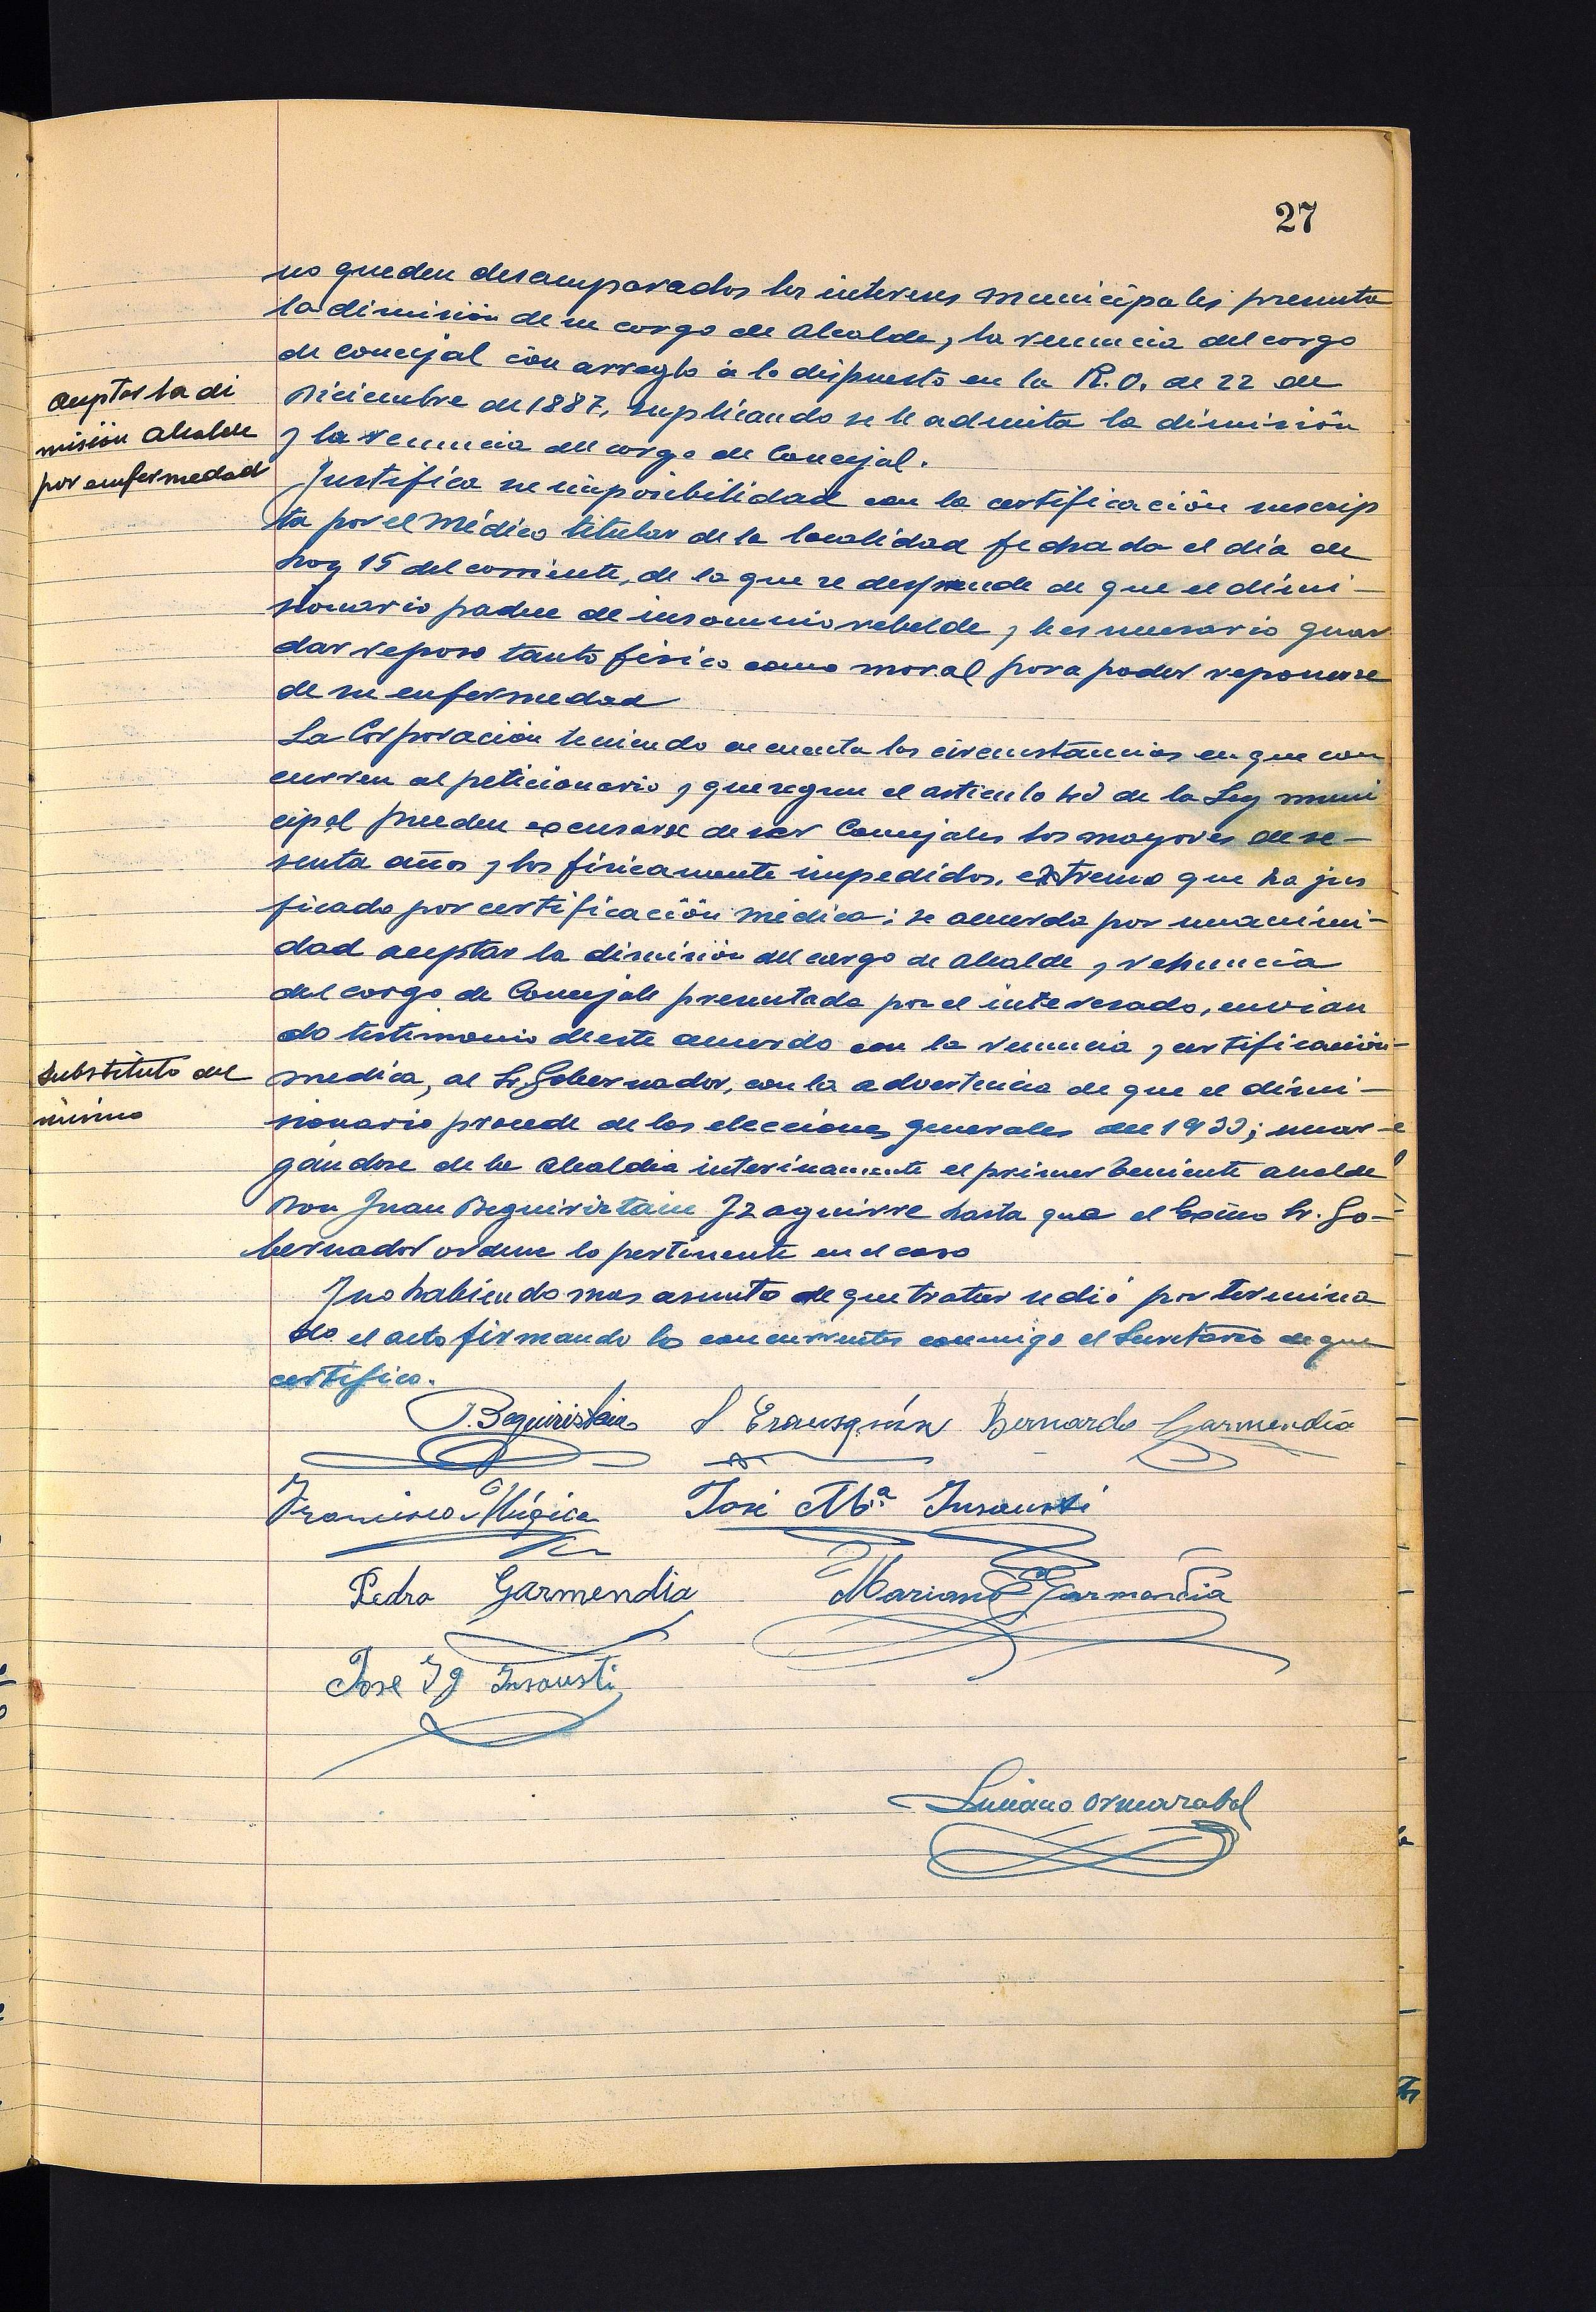 27
no queden desamparados los intereses municipales presenta
la dimisión de su cargo de Alcalde, y la renuncia del cargo
de concejal con arreglo a lo dispuesto en la R.O. de 22 de
Diciembre de 1887, suplicando se le admita la dimisión
y la renuncia del cargo de Concejal.
aceptar la di
misión alcalde
por enfermedad
Justifica su imposibilidad con la certificación suscrip
ta por el Médico titular de la localidad fechada el día de
hoy 15 del corriente, de la que se desprende de que el dimi-
sionario padece de insomnio rebelde y le es necesario guar
dar reposo tanto físico como moral para poder reponerse
de su enfermedad
La Corporación teniendo en cuenta las circunstancias en que con
curren al peticionario y que segun el articulo de la Ley muni
cipal pueden excusarse de ser Concejales los mayores de se-
senta años y los físicamente impedidos, extremo que ha jus
ficado por certificación médica; se acuerda por unanimi-
dad aceptar la dimisión del cargo de alcalde y renuncia
del cargo de Concejale presentada por el interesado, envian
do testimonio de este acuerdo con la renuncia y certificación
medica, al Sr. Gobernador, con la advertencia de que el dimi-
sionario procede de las elecciones generales del 1933; encar-
gándose de la Alcaldia interinamente el primer teniente alcalde
Don Juan Beguiristain Izaguirre hasta que el Excmo Sr. Go-
bernador ordene lo pertinente en el caso
substituto del
mismo
Y no habiendo mas asunto de que tratar se dió por termina
do el acto firmando los concurrentes conmigo el Secretario de que
certifico.
J. Beguiristain Erausquin Bernardo Garmendia
Francisco Múgica José Mª Insausti
Pedro Garmendia Mariano Garmendia
José Ig Insausti
Luciano Ormazabal